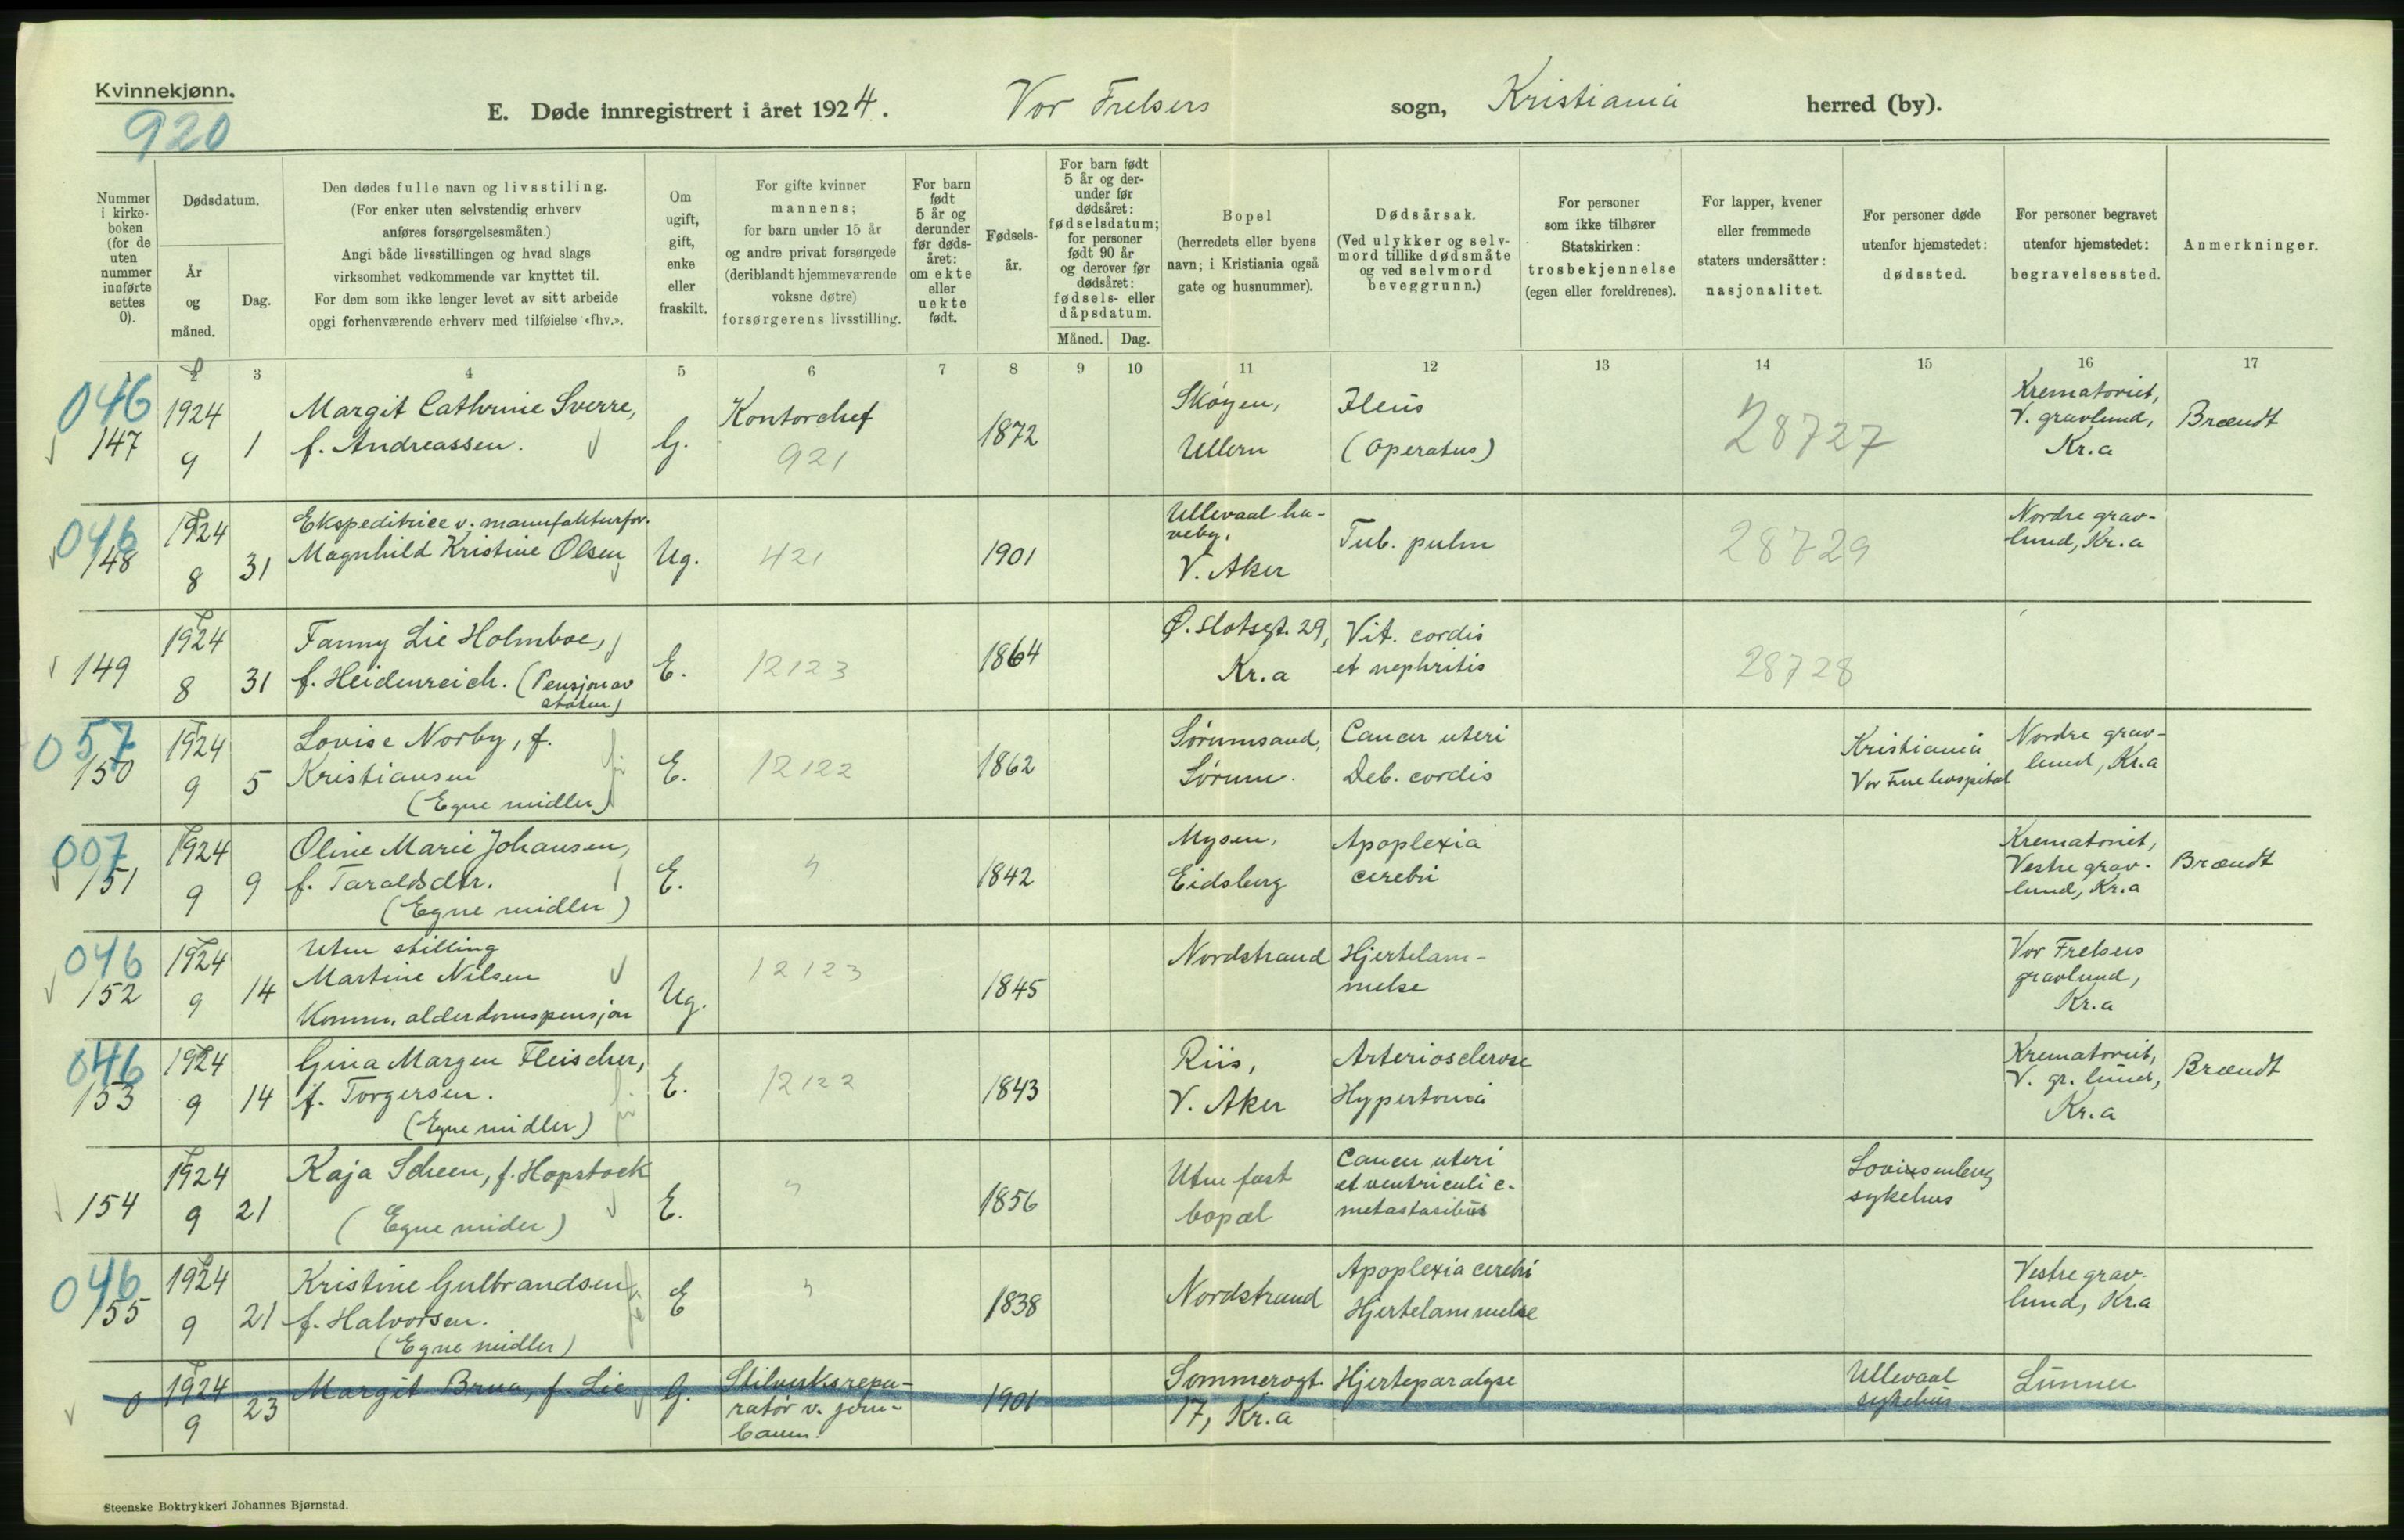 Kvinnekjønn.
920
E. Døde innregistrert i året 1924. Vor Frelsers sogn, Kristiania herred (by).
Nummer i kirkeboken (for de uten nummer innførte settes 0).
Dødsdatum.
År og måned.
Dag.
Den dødes fulle navn og livsstiling.
(For enker uten selvstendig erhverv
anføres forsørgelsesmåten.)
Angi både livsstillingen og hvad slags
virksomhet vedkommende var knyttet til.
For dem som ikke lenger levet av sitt arbeide
opgi forhenværende erhverv med tilføielse «fhv.».
Om ugift, gift, enke eller fraskilt.
For gifte kvinner
mannens;
for barn under 15 år
og andre privat forsørgede
(deriblandt hjemmeværende
voksne døtre)
forsørgerens livsstilling.
For barn født 5 år og derunder før dødsåret: om ekte eller uekte født.
Fødselsår.
For barn født 5 år og derunder før dødsåret: fødselsdatum; for personer født 90 år og derover før dødsåret: fødsels- eller dåpsdatum.
Måned. Dag.
Bopel
(herredets eller byens
navn; i Kristiania også
gate og husnummer).
Dødsårsak.
(Ved ulykker og selv-
mord tillike dødsmåte
og ved selvmord
beveggrunn.)
For personer
som ikke tilhører
Statskirken:
trosbekjennelse
(egen eller foreldrenes).
For lapper, kvener
eller fremmede
staters undersåtter:
nasjonalitet.
For personer døde
utenfor hjemstedet:
dødssted.
For personer begravet
utenfor hjemstedet:
begravelsessted.
Anmerkninger.
1 2 3 4 5 6 7 8 9 10 11 12 13 14 15 16 17
046
147
1924
9
1
Margit Cathrine Sverre,
f. Andreassen.
G.
Kontorchef
921
1872
Skøyen,
Ullern
Ileus
(Operatus)
28727
Krematoriet,
V. gravlund,
Kr.a
Brændt
046
148
1924
8
31
Ekspeditrice v. manufakturfor.
Magnhild Kristine Olsen
Ug.
421
1901
Ullevaal ha-
veby,
V. Aker
Tub. pulm
28729
Nordre grav-
lund, Kr.a
149
1924
8
31
Fanny Lie Holmboe,
f. Heidenreich. (Pensjon av
staten)
E.
12123
1864
Ø. Slotsgt. 29,
Kr.a
Vit. cordis
et nephritis
28728
057
150
1924
9
5
Lovise Norby, f.
Kristiansen
(Egne midler)
E.
12122
1862
Sørumsand,
Sørum.
Cancer uteri
Deb. cordis
Kristiania
Vor Frue hospital
Nordre grav-
lund, Kr.a
007
151
1924
9
9
Oline Marie Johansen,
f. Taraldsdtr.
(Egne midler)
E.
"
1842
Mysen,
Eidsberg
Apoplexia
cerebri
Krematoriet,
Vestre grav-
lund, Kr.a
Brændt
046
152
1924
9
14
Uten stilling
Martine Nilsen
Komm. alderdomspensjon
Ug.
12123
1845
Nordstrand
Hjertelam-
melse
Vor Frelsers
gravlund,
Kr.a
046
153
1924
9
14
Gina Margen Fleischer,
f. Torgersen.
(Egne midler)
E.
12122
1843
Riis,
V. Aker
Arteriosclerose
Hypertonia
Krematoriet,
V. gr. lund,
Kr.a
Brændt
154
1924
9
21
Kaja Scheen, f. Hopstock
(Egne midler)
E.
"
1856
Uten fast
bopæl
Cancer uteri
et ventriculi c.
metastasibus
Lovisenberg
sykehus
046
155
1924
9
21
Kristine Gulbrandsen
f. Halvorsen.
(Egne midler)
E
"
1838
Nordstrand
Apoplexia cerebri
Hjertelammelse
Vestre grav-
lund, Kr.a
0
1924
9
23
Margit Brua, f. Lie
G.
Stilverksrepa-
ratør v. jern-
banen.
1901
Sommerogt.
17, Kr.a
Hjerteparalyse
Ullevaal
sykehus
Lunner
Steenske Boktrykkeri Johannes Bjørnstad.